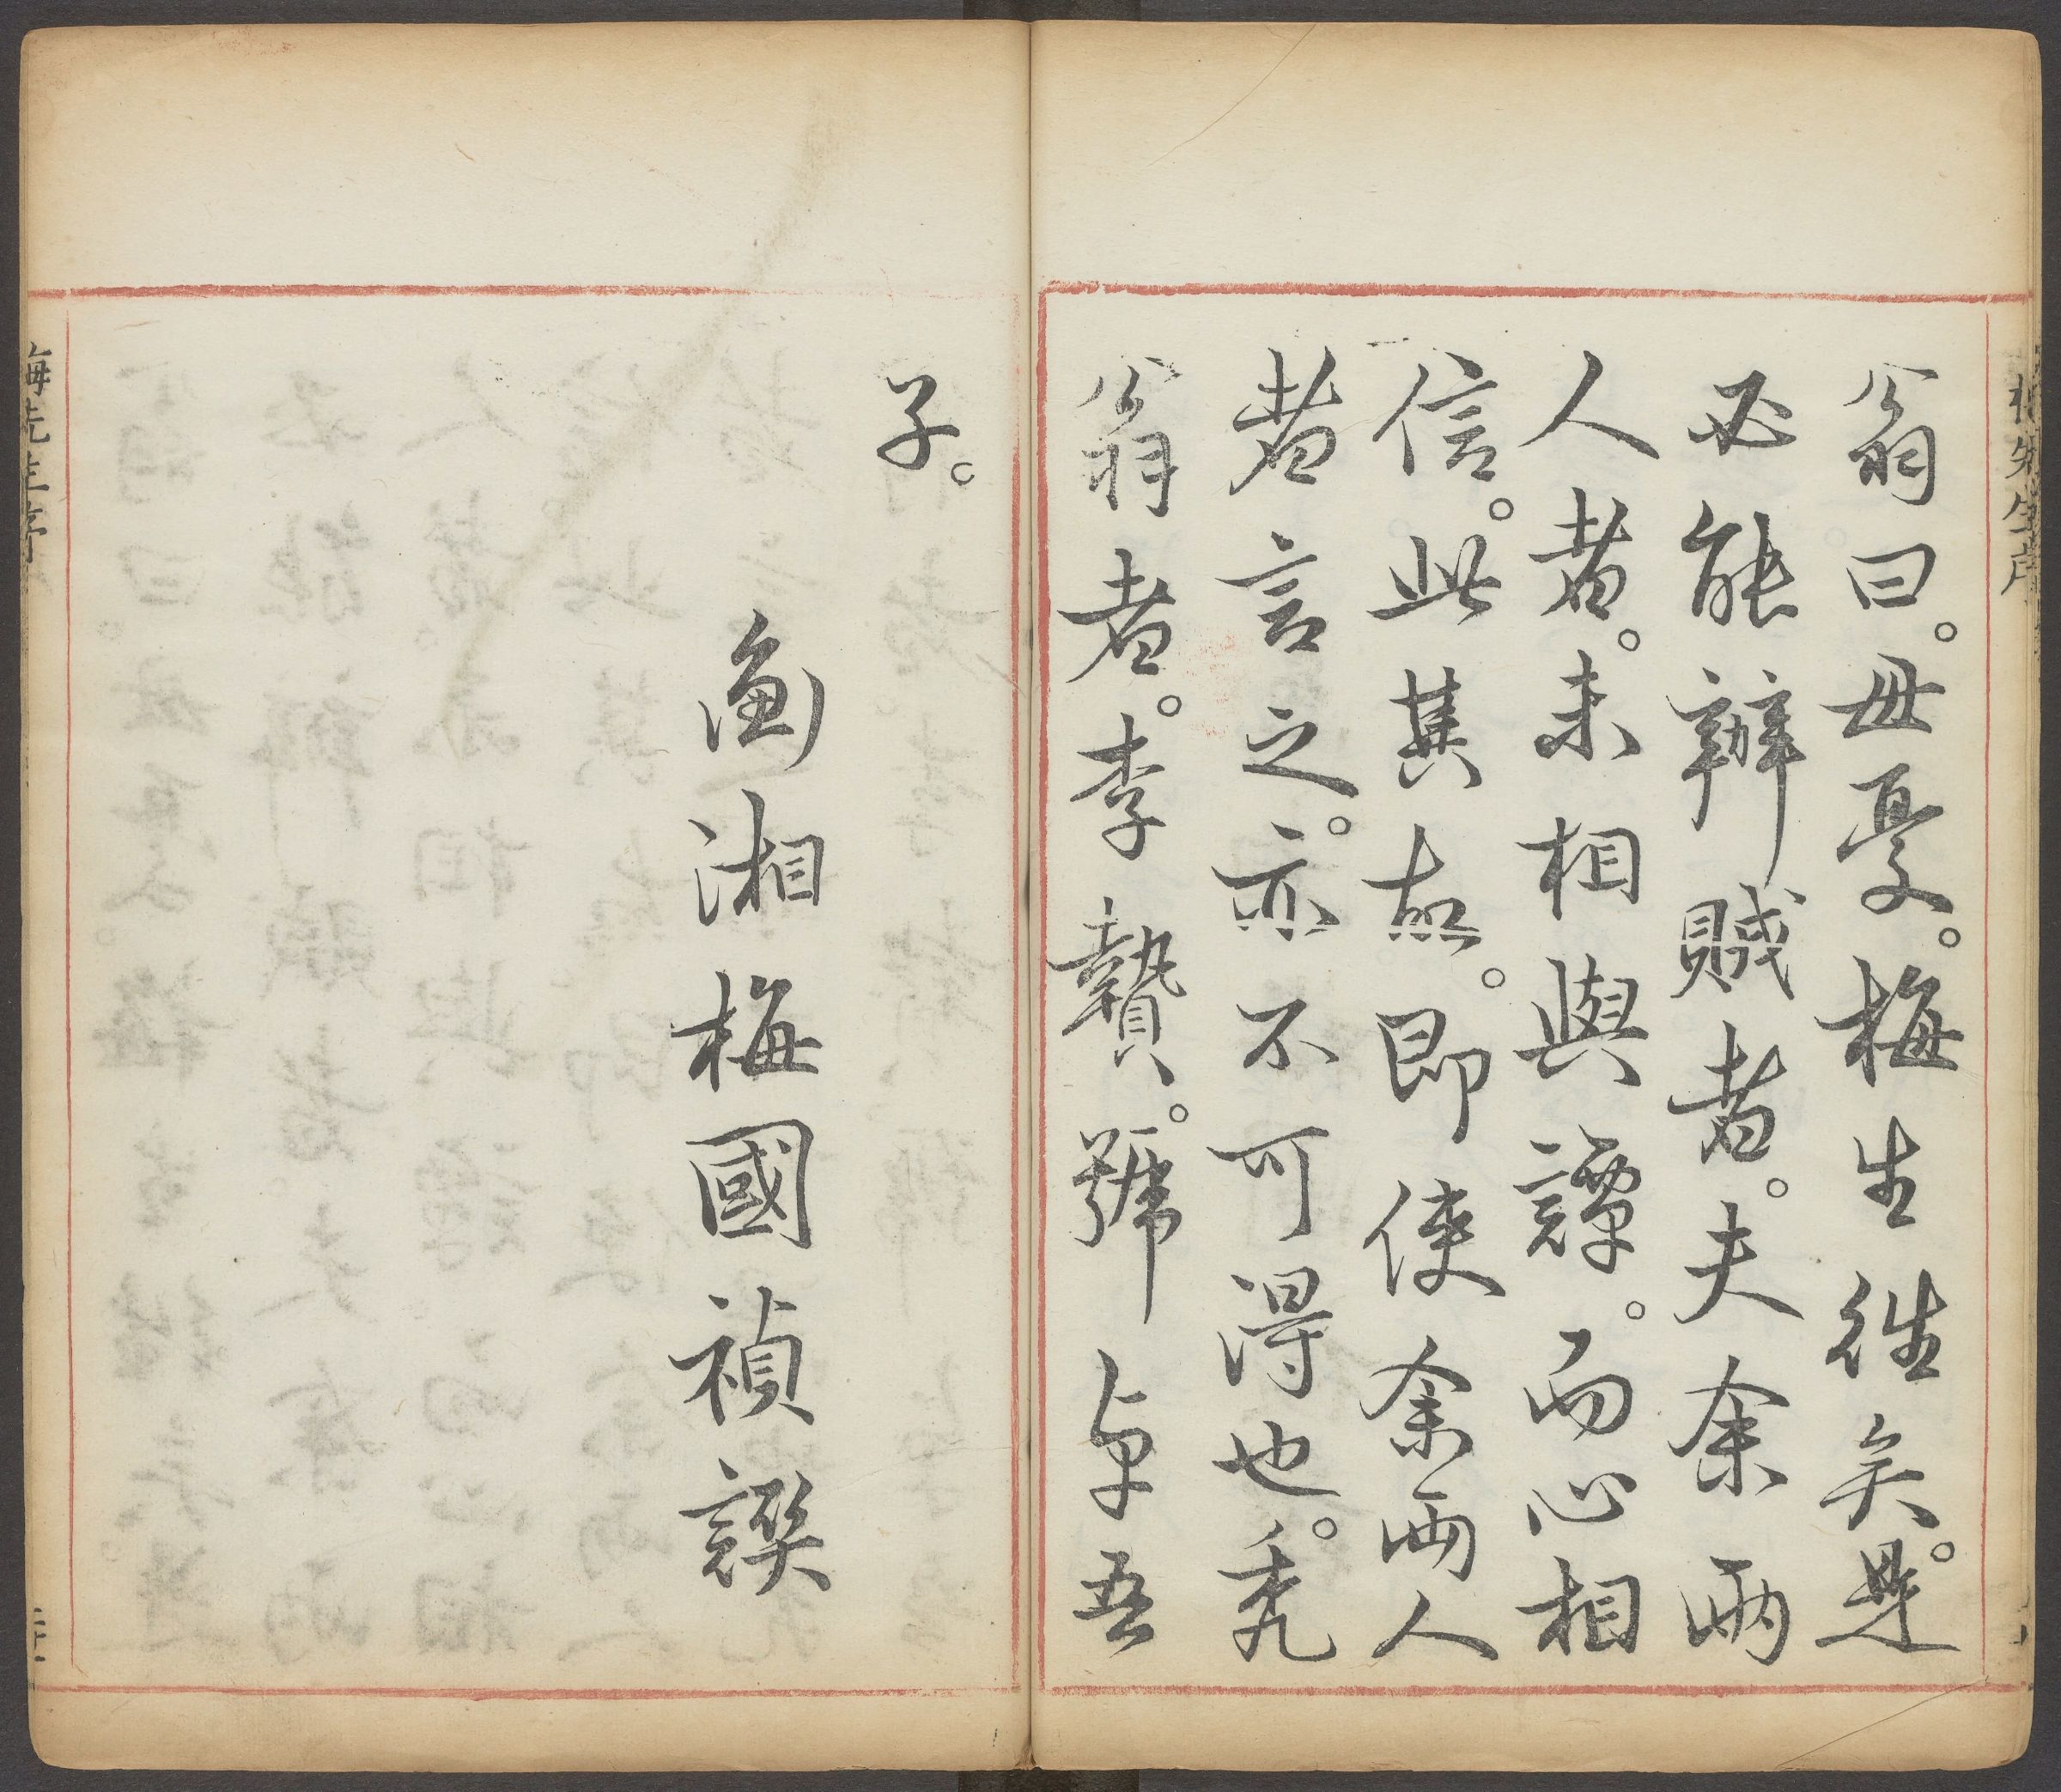 翁曰。毋憂。梅生徃矣。是
必能辦賊者。夫余兩
人者。未相與譚。而心相
信。此其故。即使余兩人
者言之。亦不可得也。禿
翁者。李贄。號卓吾
子。
衡湘梅國禎譔
梅先生序